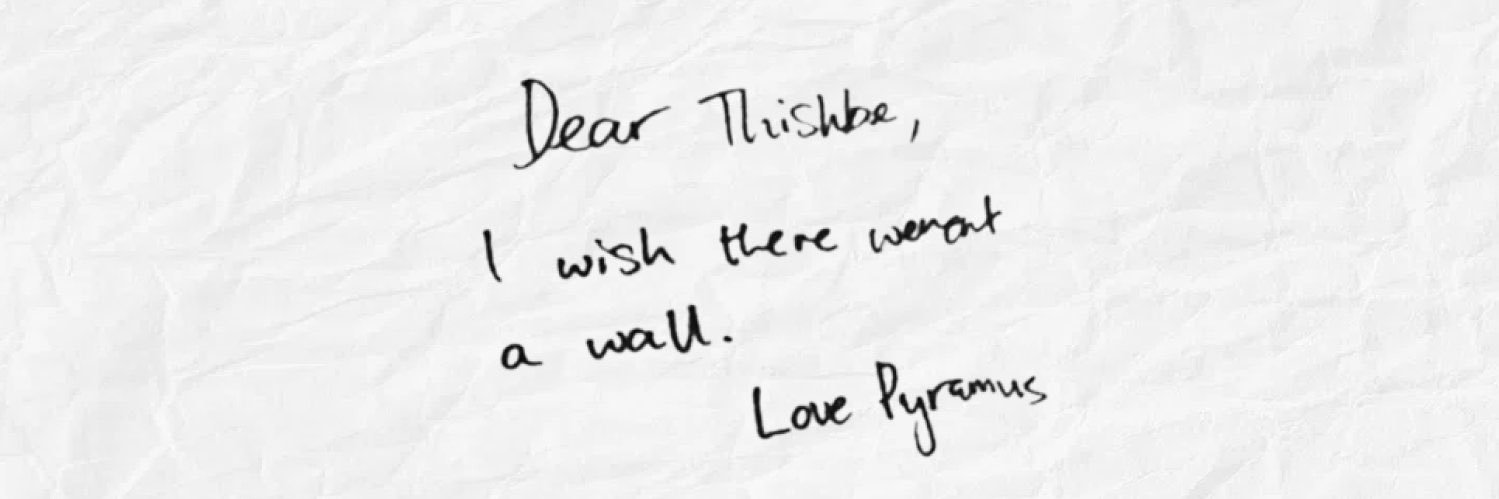 Dear Thishbe,
I wish there werent
a wall.
Love Pyramus